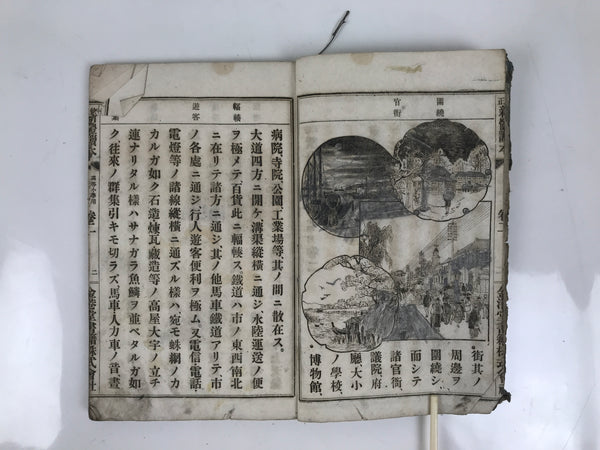 圍繞
官衙
街其ノ
周邊ヲ
圍繞シ
而シテ
諸官衙、
議院、府
廳、大小
ノ學校、
博物館、
輻輳
遊客
病院、寺院、公園、工業場等、其ノ間ニ散在ス。
大道四方ニ開ケ溝渠縱橫ニ通ジ、水陸運送ノ便
ヲ極メテ百貨此ニ輻輳ス、鐵道ハ市ノ東西南北
ニ在リテ諸方ニ通ジ、其ノ他馬車鐵道アリテ市
ノ各處ニ通ジ、行人遊客便利ヲ極ム、又電信電話、
電燈等ノ諸線縱橫ニ通ズル樣ハ宛モ蛛網ノカ
カルガ如ク、石造煉瓦藏造等ノ高屋大宇ノ立チ
連ナリタル樣ハサナガラ魚鱗ヲ並ベタルガ如
ク、往來ノ群集引キモ切ラズ、馬車、人力車ノ音書
讀本
卷二
二
金港堂書籍株式會社